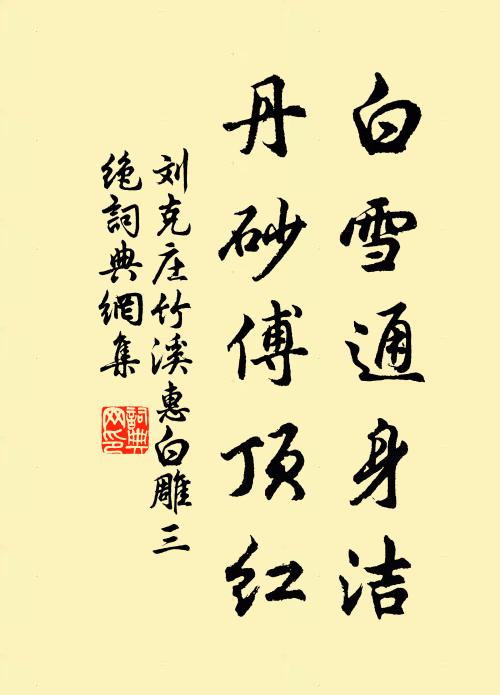 白雪通身洁
丹砂傅顶红
刘克庄竹溪惠白雕三
绝詞典網集
詞典網印